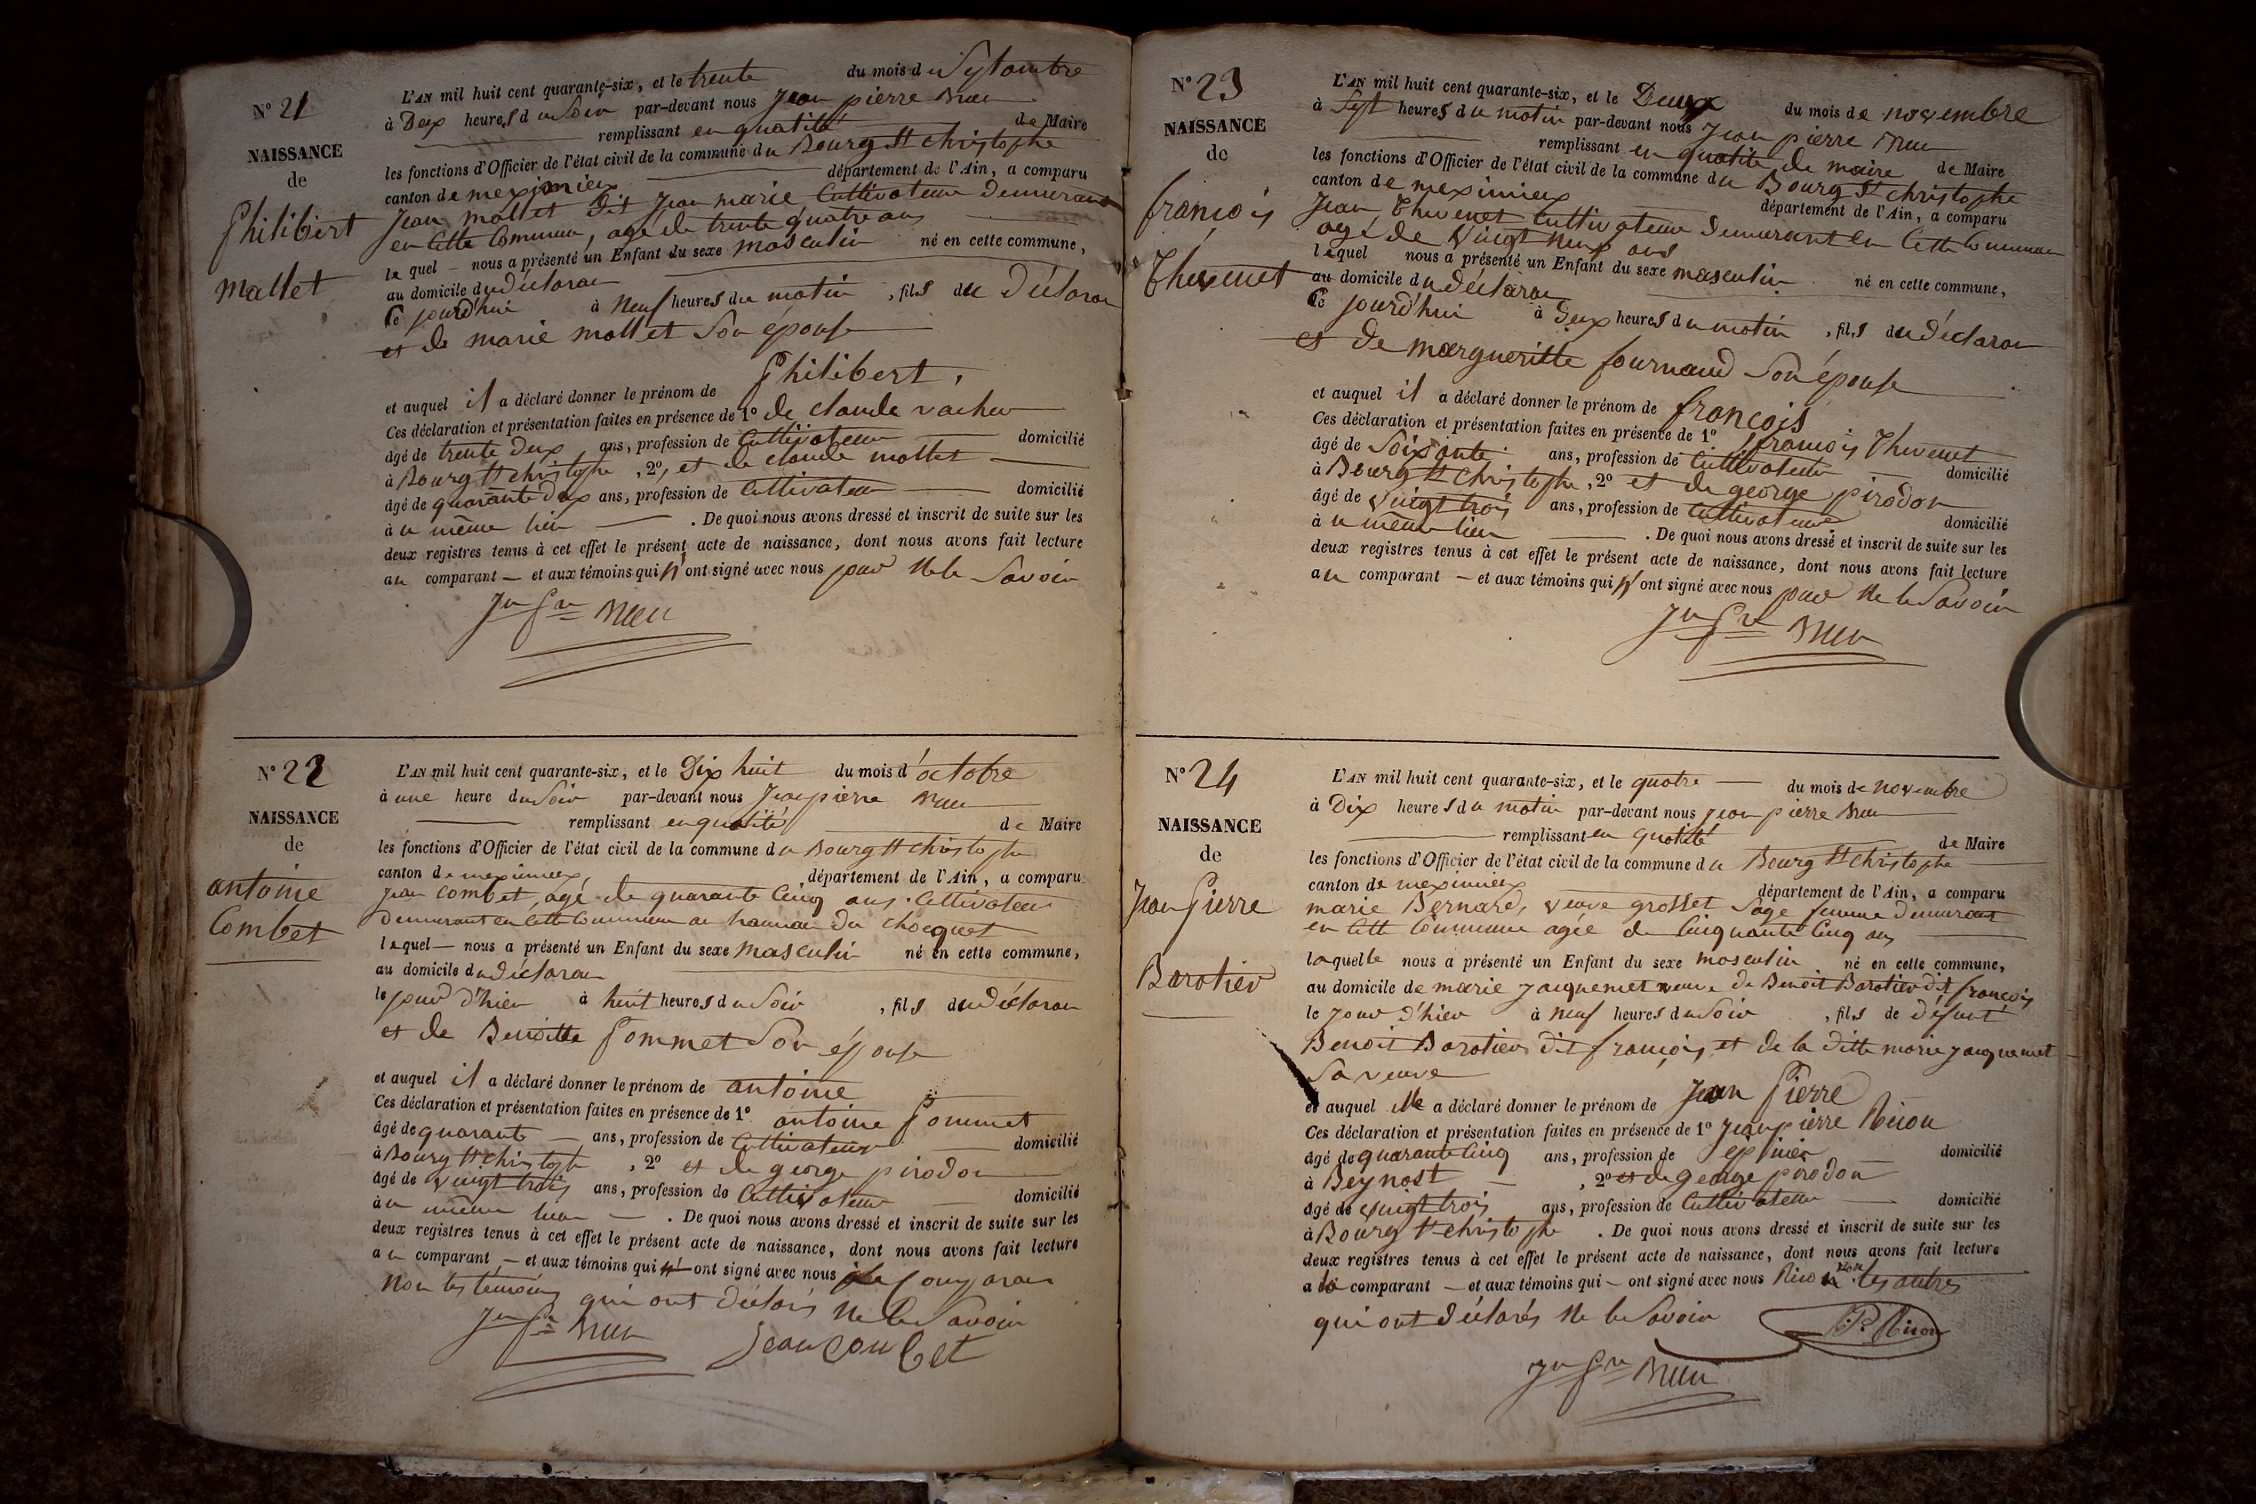 N° 21
NAISSANCE
de
Philibert
mallet
L'AN mil huit cent quarante-six, et le trente du mois de Septembre
à Deux heures du Soir par-devant nous Jean pierre
remplissant en qualité de Maire
les fonctions d'Officier de l'état civil de la commune du Bourg St christophe
canton de meximieux département de l'Ain, a comparu
Jean mallet dit Jean marie, Cultivateur Demeurant
en Cette Commune, agé de trente quatre ans
lequel — nous a présenté un Enfant du sexe masculin né en cette commune,
au domicile du déclaran
Ce jourd'hui à Neuf heures du matin, fils du Déclaran
et de marie mallet Son épouse
et auquel il a déclaré donner le prénom de Philibert.
Ces déclaration et présentation faites en présence de 1° de claude vacher
âgé de trente Deux ans, profession de Cultivateur domicilié
à Bourg St christophe, 2° et de claude mallet
âgé de quarante Deux ans, profession de Cultivateur domicilié
à u même lieu — . De quoi nous avons dressé et inscrit de suite sur les
deux registres tenus à cet effet le présent acte de naissance, dont nous avons fait lecture
au comparant — et aux témoins qui n'ont signé avec nous pour Ne le Savoir
Jn Pre
N° 22
NAISSANCE
de
antoine
Combet
L'AN mil huit cent quarante-six, et le Dix huit du mois d'octobre
à une heure du Soir par-devant nous Jean pierre
remplissant en qualité de Maire
les fonctions d'Officier de l'état civil de la commune du Bourg St christophe
canton de meximieux, département de l'Ain, a comparu
Jean Combet, agé de quarante Cinq ans, Cultivateur
Demeurant en Cette Commune au hameau du chocquet
lequel — nous a présenté un Enfant du sexe masculin né en cette commune,
au domicile du déclaran
le jour d'hier à huit heures du Soir, fils du déclaran
et de Benoitte Pommet Son épouse
et auquel il a déclaré donner le prénom de antoine
Ces déclaration et présentation faites en présence de 1° antoine Pommet
âgé de quarante — ans, profession de Cultivateur domicilié
à Bourg St christophe, 2° et de george pirodon
âgé de vingt trois ans, profession de Cultivateur domicilié
à u même lieu — . De quoi nous avons dressé et inscrit de suite sur les
deux registres tenus à cet effet le présent acte de naissance, dont nous avons fait lecture
au comparant — et aux témoins qui ont signé avec nous le Comparan
Non les témoins qui ont déclarés Ne le Savoir
Jn Pre Jean Combet
N° 23
NAISSANCE
de
françois
Thevenet
L'AN mil huit cent quarante-six, et le Deux du mois de novembre
à Sept heures du matin par-devant nous Jean pierre
remplissant en qualité de maire de Maire
les fonctions d'Officier de l'état civil de la commune du Bourg St christophe
canton de meximieux département de l'Ain, a comparu
Jean Thevenet Cultivateur Demeurant en Cette Commune
agé de Vingt Neuf ans
lequel nous a présenté un Enfant du sexe masculin né en cette commune,
au domicile du déclaran
Ce jourd'hui à Deux heures du matin, fils du déclaran
et De margueritte fournand Son épouse
et auquel il a déclaré donner le prénom de françois
Ces déclaration et présentation faites en présence de 1° françois Thevenet
âgé de Soixante ans, profession de Cultivateur domicilié
à Bourg St christophe, 2° et de george pirodon
âgé de vingt trois ans, profession de Cultivateur domicilié
à u même lieu . De quoi nous avons dressé et inscrit de suite sur les
deux registres tenus à cet effet le présent acte de naissance, dont nous avons fait lecture
au comparant — et aux témoins qui n'ont signé avec nous pour Ne le Savoir
Jn Pre
N° 24
NAISSANCE
de
Jean Pierre
Barotier
L'AN mil huit cent quarante-six, et le quatre — du mois de novembre
à Dix heures du matin par-devant nous Jean pierre
remplissant en qualité de Maire
les fonctions d'Officier de l'état civil de la commune du Bourg St christophe
canton de meximieux département de l'Ain, a comparu
marie Bernard, veuve grosset Sage femme Demeurant
en Cette Commune agée de Cinquante Cinq ans
laquelle nous a présenté un Enfant du sexe masculin né en cette commune,
au domicile de marie jacquemet veuve de Benoit Barotier dit françois
le jour d'hier à Neuf heures du Soir, fils de défunt
Benoit Barotier dit françois, et de la ditte marie jacquemet
Sa veuve
et auquel elle a déclaré donner le prénom de Jean Pierre
Ces déclaration et présentation faites en présence de 1° Jean pierre
âgé de quarante Cinq ans, profession de domicilié
à Beynost — , 2° et de george pirodon
âgé de vingt trois ans, profession de Cultivateur domicilié
à Bourg St christophe . De quoi nous avons dressé et inscrit de suite sur les
deux registres tenus à cet effet le présent acte de naissance, dont nous avons fait lecture
a la comparant — et aux témoins qui — ont signé avec nous non les autres
qui ont déclarés Ne le Savoir
Jn Pre